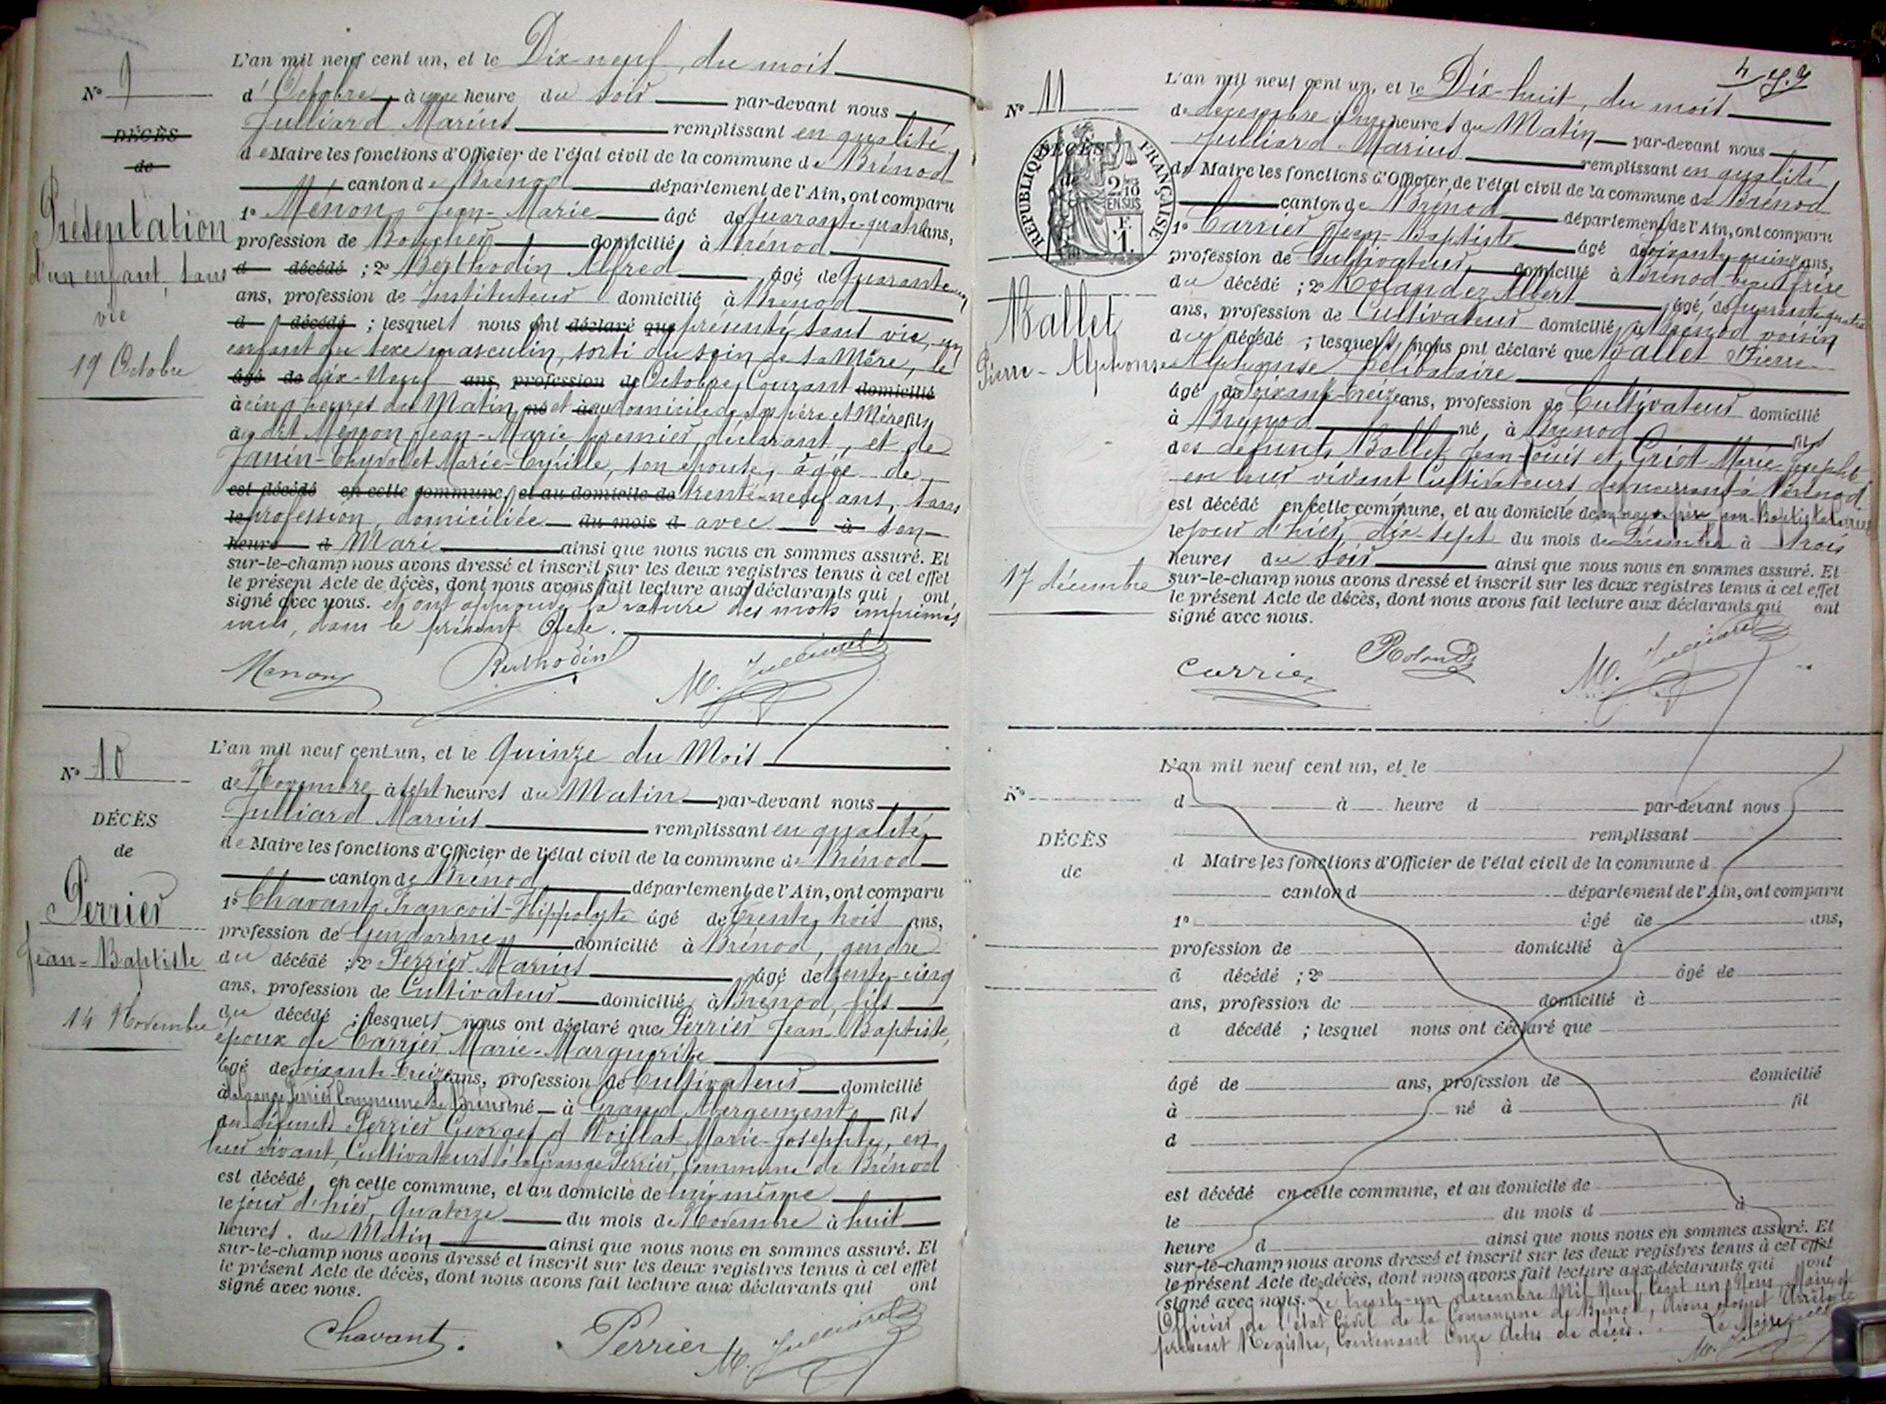 N° 9
DÉCÈS
de
Présentation
d'un enfant sans
vie
19 Octobre
L'an mil neuf cent un, et le Dix-neuf, du mois
d'Octobre à une heure du soir par-devant nous
Julliard Marius remplissant en qualité
de Maire les fonctions d'Officier de l'état civil de la commune de Brénod
canton de Brénod département de l'Ain, ont comparu
1° Menon Jean-Marie âgé de quarante-quatre ans,
profession de Boucher domicilié à Brénod
d décédé ; 2° Berthodin Alfred âgé de quarante-un
ans, profession de Instituteur domicilié à Brénod
d décédé ; lesquels nous ont déclaré que présenté sans vie, un
enfant du sexe masculin, sorti du sein de sa Mère, le
âgé de dix-Neuf ans, profession de Octobre Courant domicilié
à cinq heures du Matin, né et à au domicile de ses père et Mère fils
du dit Menon Jean-Marie premier, déclarant, et de
Janin-Thyvolet Marie-Cyrille, son épouse, âgée de
est décédé en cette commune, et au domicile de trente-neuf ans, sans
le profession, domiciliée du mois d avec à son
heure d Mari ainsi que nous nous en sommes assuré. Et
sur-le-champ nous avons dressé et inscrit sur les deux registres tenus à cet effet
le présent Acte de décès, dont nous avons fait lecture aux déclarants qui ont
signé avec nous. et ont approuvé la rature des mots imprimés
nuls, dans le présent Acte.
Menon Berthodin M. Julliard
N° 10
DÉCÈS
de
Perrier
Jean-Baptiste
14 Novembre
L'an mil neuf cent un, et le Quinze du Mois
de Novembre à sept heures du Matin par-devant nous
Julliard Marius remplissant en qualité
de Maire les fonctions d'Officier de l'état civil de la commune de Brénod
canton de Brénod département de l'Ain, ont comparu
1° Chavant François-Hippolyte âgé de trente trois ans,
profession de Gendarme domicilié à Brénod, gendre
du décédé ; 2° Perrier Marius âgé de trente-cinq
ans, profession de Cultivateur domicilié à Brénod, fils
du décédé ; lesquels nous ont déclaré que Perrier Jean-Baptiste,
époux de Carrier Marie-Marguerite
âgé de soixante-treize ans, profession de Cultivateur domicilié
à la Grange Perrier Commune de Brénod né à Grand Abergement fils
des défunts Perrier Georges et Roillat Marie-Josephte, en
leur vivant, Cultivateurs à la grange Perrier, Commune de Brénod
est décédé en cette commune, et au domicile de lui-même
le jour d'hier, Quatorze du mois de Novembre à huit
heures du Matin ainsi que nous nous en sommes assuré. Et
sur-le-champ nous avons dressé et inscrit sur les deux registres tenus à cet effet
le présent Acte de décès, dont nous avons fait lecture aux déclarants qui ont
signé avec nous.
Chavant. Perrier M. Julliard
N° 11
DÉCÈS
RÉPUBLIQUE FRANÇAISE
2/10 EN SUS
F. 1
Ballet
Pierre-Alphonse
17 décembre
L'an mil neuf cent un, et le Dix-huit, du mois
de décembre à heures du Matin par-devant nous
Julliard Marius remplissant en qualité
de Maire les fonctions d'Officier de l'état civil de la commune de Brénod
canton de Brénod département de l'Ain, ont comparu
1° Carrier Jean-Baptiste âgé de soixante quinze ans,
profession de Cultivateur domicilié à Brénod beau frère
du décédé ; 2° Rolandez Albert âgé de quarante quatre
ans, profession de Cultivateur domicilié à Brénod voisin
du décédé ; lesquels nous ont déclaré que Ballet Pierre-
Alphonse Célibataire
âgé de soixante-treize ans, profession de Cultivateur domicilié
à Brénod né à Brénod fils
des défunts Ballet Jean-Louis et Griot Marie-Josephte
en leur vivant Cultivateurs demeurant à Brénod
est décédé en cette commune, et au domicile de son beau-frère Jean-Baptiste Carrier
le jour d'hier, dix-sept du mois de Décembre à trois
heures du soir ainsi que nous nous en sommes assuré. Et
sur-le-champ nous avons dressé et inscrit sur les deux registres tenus à cet effet
le présent Acte de décès, dont nous avons fait lecture aux déclarants qui ont
signé avec nous.
Carrier Rolandez M. Julliard
N°
DÉCÈS
de
L'an mil neuf cent un, et le
d à heure d par-devant nous
remplissant
d Maire les fonctions d'Officier de l'état civil de la commune d
canton d département de l'Ain, ont comparu
1° âgé de ans,
profession de domicilié à
d décédé ; 2° âgé de
ans, profession de domicilié à
d décédé ; lesquel nous ont déclaré que
âgé de ans, profession de domicilié
à né à fil
d
est décédé en cette commune, et au domicile de
le du mois d à
heure d ainsi que nous nous en sommes assuré. Et
sur-le-champ nous avons dressé et inscrit sur les deux registres tenus à cet effet
le présent Acte de décès, dont nous avons fait lecture aux déclarants qui ont
signé avec nous. Le trente-un décembre Mil Neuf Cent un Nous Maire et
Officier de l'état Civil de la Commune de Brénod, Avons clos et Arrêté le
présent Registre, Contenant Onze Actes de décès. Le Maire